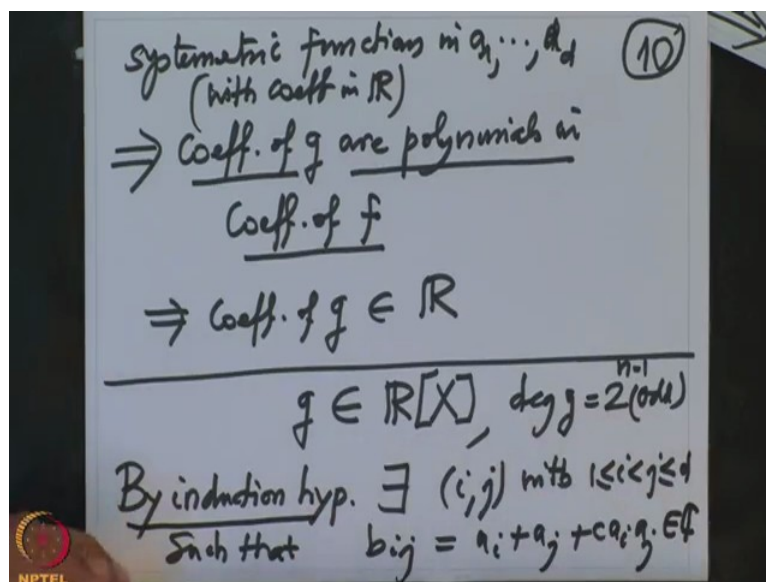 systemetric functions in a₁, ⋯, a_d
(with coeff in ℝ)
10
⇒ Coeff. of g are polynomials in
Coeff. of f
⇒ Coeff. of g ∈ ℝ
g ∈ ℝ[X], deg g = 2ⁿ⁻¹(odd)
By induction hyp. ∃ (i,j) with 1≤i<j≤d
Such that b_ij = a_i + a_j + c a_i a_j ∈ ℂ
NPTEL